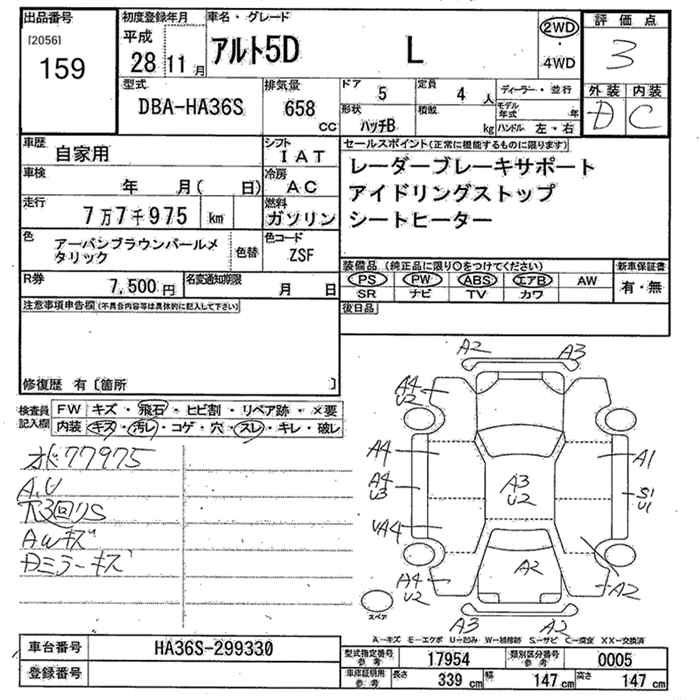 出品番号
[2056]
159
初度登録年月
平成
28 11 月
車名・グレード
アルト5D L
2WD
・
4WD
評価点
3
外装 内装
D C
型式
DBA-HA36S
排気量
658 CC
ドア 5
定員 4 人
ディーラー・並行
形状 ハッチB
積載 kg
モデル年式 年
ハンドル 左・右
車歴 自家用
シフト IAT
車検 年 月( 日)
冷房 AC
走行 7万7千975 km
燃料 ガソリン
色 アーバンブラウンパールメタリック
色替
色コード ZSF
R券 7,500円
名変通知期限 月 日
セールスポイント(正常に機能するものに限ります)
レーダーブレーキサポート
アイドリングストップ
シートヒーター
装備品 (純正品に限り○をつけてください)
新車保証書
PS PW ABS エアB AW
SR ナビ TV カワ
有・無
後日品
注意事項申告欄(不具合内容等は具体的に記入して下さい)
修復歴 有〔箇所 〕
検査員記入欄
FW キズ・飛石・ヒビ割・リペア跡・×要
内装 キズ・汚レ・コゲ・穴・スレ・キレ・破レ
77975
A,U
下3回りS
AWキズ
Dミラーキズ
A2 A3
A4
U2
A4
A4
U3
UA4
A4
U2
A3
U2
A1
S1
U1
A2
A2
A3 A2
スペア
A-キズ E-エクボ U-凹み W-補修跡 S-サビ C-腐食 XX-交換済
車台番号 HA36S-299330
登録番号
型式指定番号 参考 17954
類別区分番号 参考 0005
車庫証明用 参考 長さ 339 cm 幅 147 cm 高さ 147 cm